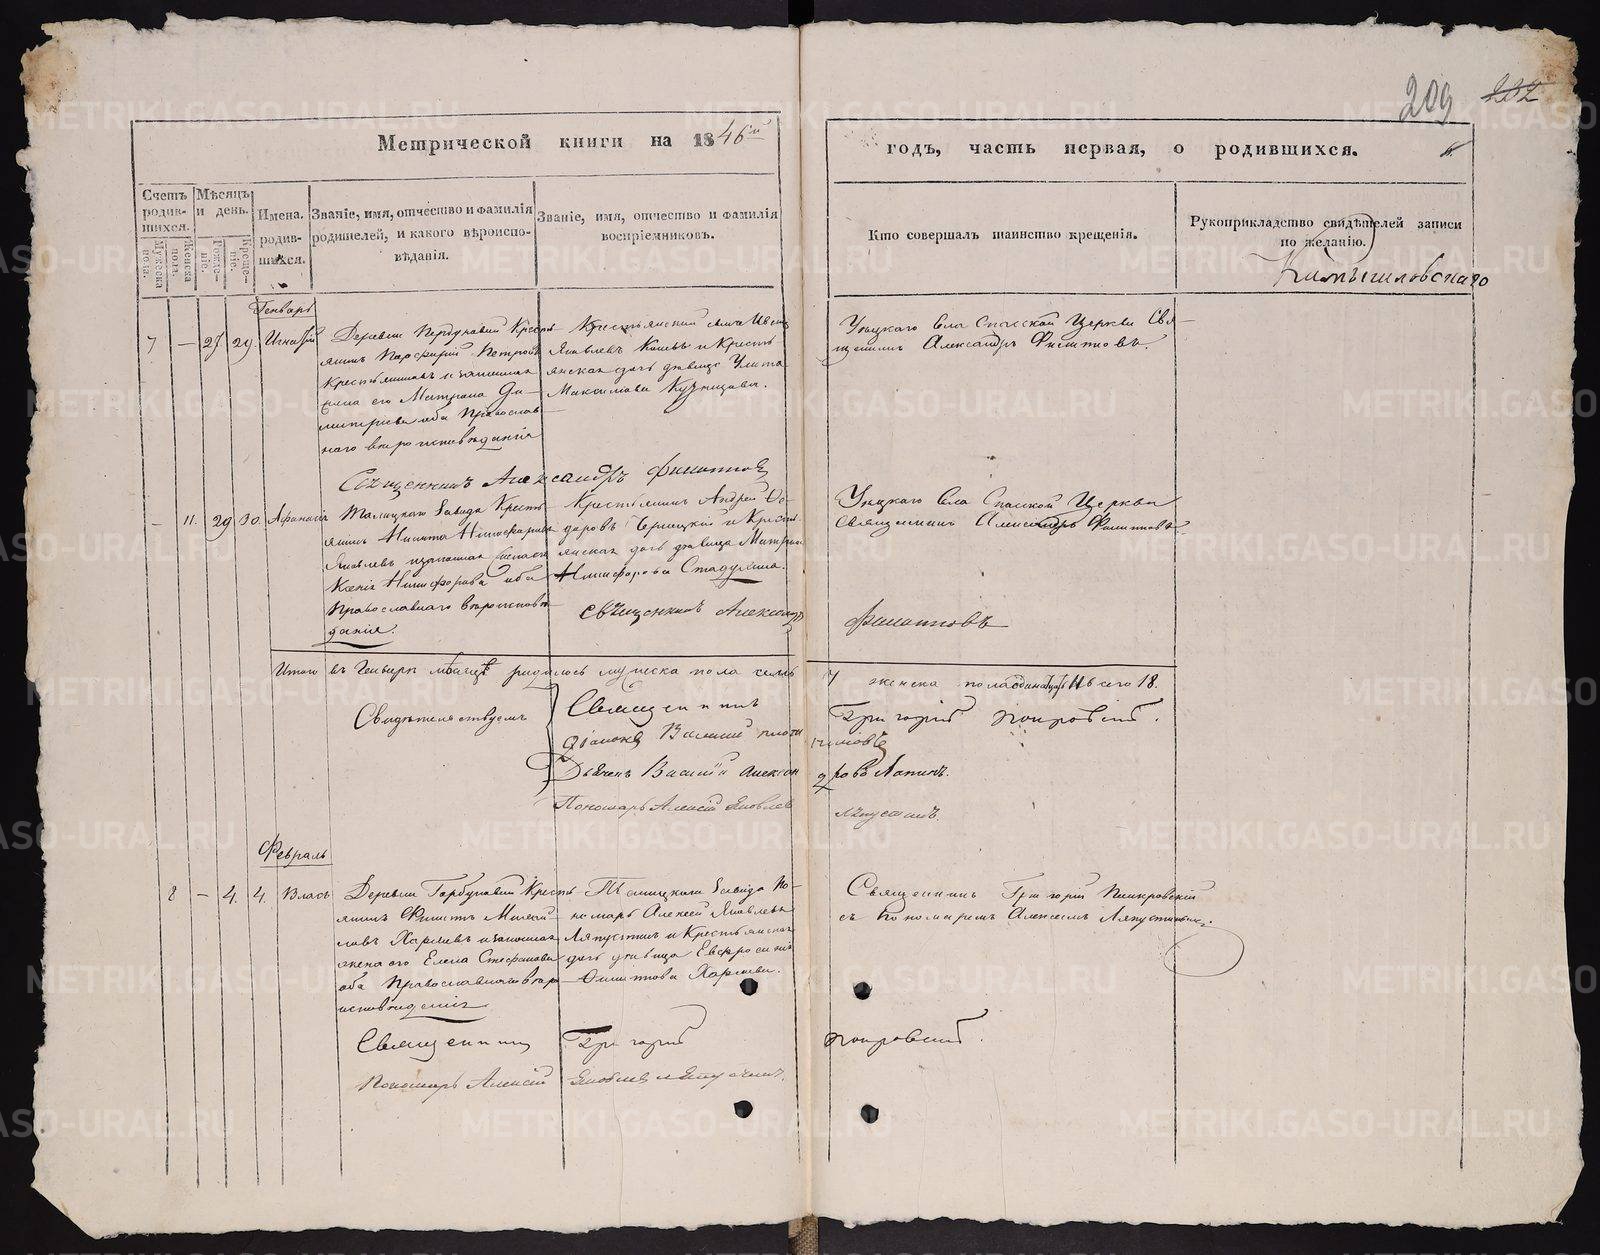 209 202
Метрической книги на 1846й годъ, часть первая, о родившихся.
Счетъ родившихся.
Мужеска пола.
Женска пола.
Мѣсяцъ и день.
Рожденіе.
Крещеніе.
Имена родившихся.
Званіе, имя, отчество и фамилія родителей, и какого вѣроисповѣданія.
Званіе, имя, отчество и фамилія воспріемниковъ.
Кто совершалъ таинство крещенія.
Рукоприкладство свидѣтелей записи по желанію.
Камышловскаго
Генварь
7 — 27 29. Игнатій
Деревни Кресть
янинъ Порфирій Петровъ
Крестьяниновъ и законная
жена его Матрона Ди—
митріева оба Православ
наго вѣроисповѣданія
Крестьянскій сынъ Иванъ
Яковлевъ и Кресть
янская дочь дѣвица Улита
Максимова Кузнецова.
Упцкаго Села Спасской Церкви Свя—
щенникъ Александръ Филатовъ.
Священникъ Александръ Филатовъ
— 11. 29 30. Афанасія
Талицкаго Завода Кресть
янинъ Никита Никифоровъ
Яковлевъ
Ксенія Никифорова оба
Православнаго вѣроисповѣ
данія.
Крестьянинъ Андрей Фе—
доровъ и Кресть
янская дочь дѣвица Матрона
Никифорова Стадухина.
Упцкаго Села Спасской Церкви
Священникъ Александръ Филатовъ.
Священникъ Александръ Филатовъ
Итого въ Генварѣ мѣсяцѣ родилось мужеска пола семь 7 женска пола одинадцать 11 всего 18.
Свидѣтельствуемъ
Священникъ Григорій Покровскій.
Діаконъ Василій
Дьячекъ Василій Александровъ Лапинъ.
Пономарь Алексій Яковлевъ Ляпустинъ.
Февраль
8 — 4. 4. Власъ
Деревни Горбуновой Кресть
янинъ Филатъ
Харловъ и законная
жена его Елена Стефанова
оба Православнаго вѣро
исповѣданія
Талицкаго Завода По—
номарь Алексей Яковлевъ
Ляпустинъ и Крестьянская
дочь дѣвица Евфросинія
Филатова Харлова.
Священникъ Григорій Покровскій
съ Пономаремъ Алексеемъ Ляпустинымъ.
Священникъ Григорій Покровскій.
Пономарь Алексій Яковлевъ Ляпустинъ.
METRIKI.GASO-URAL.RU